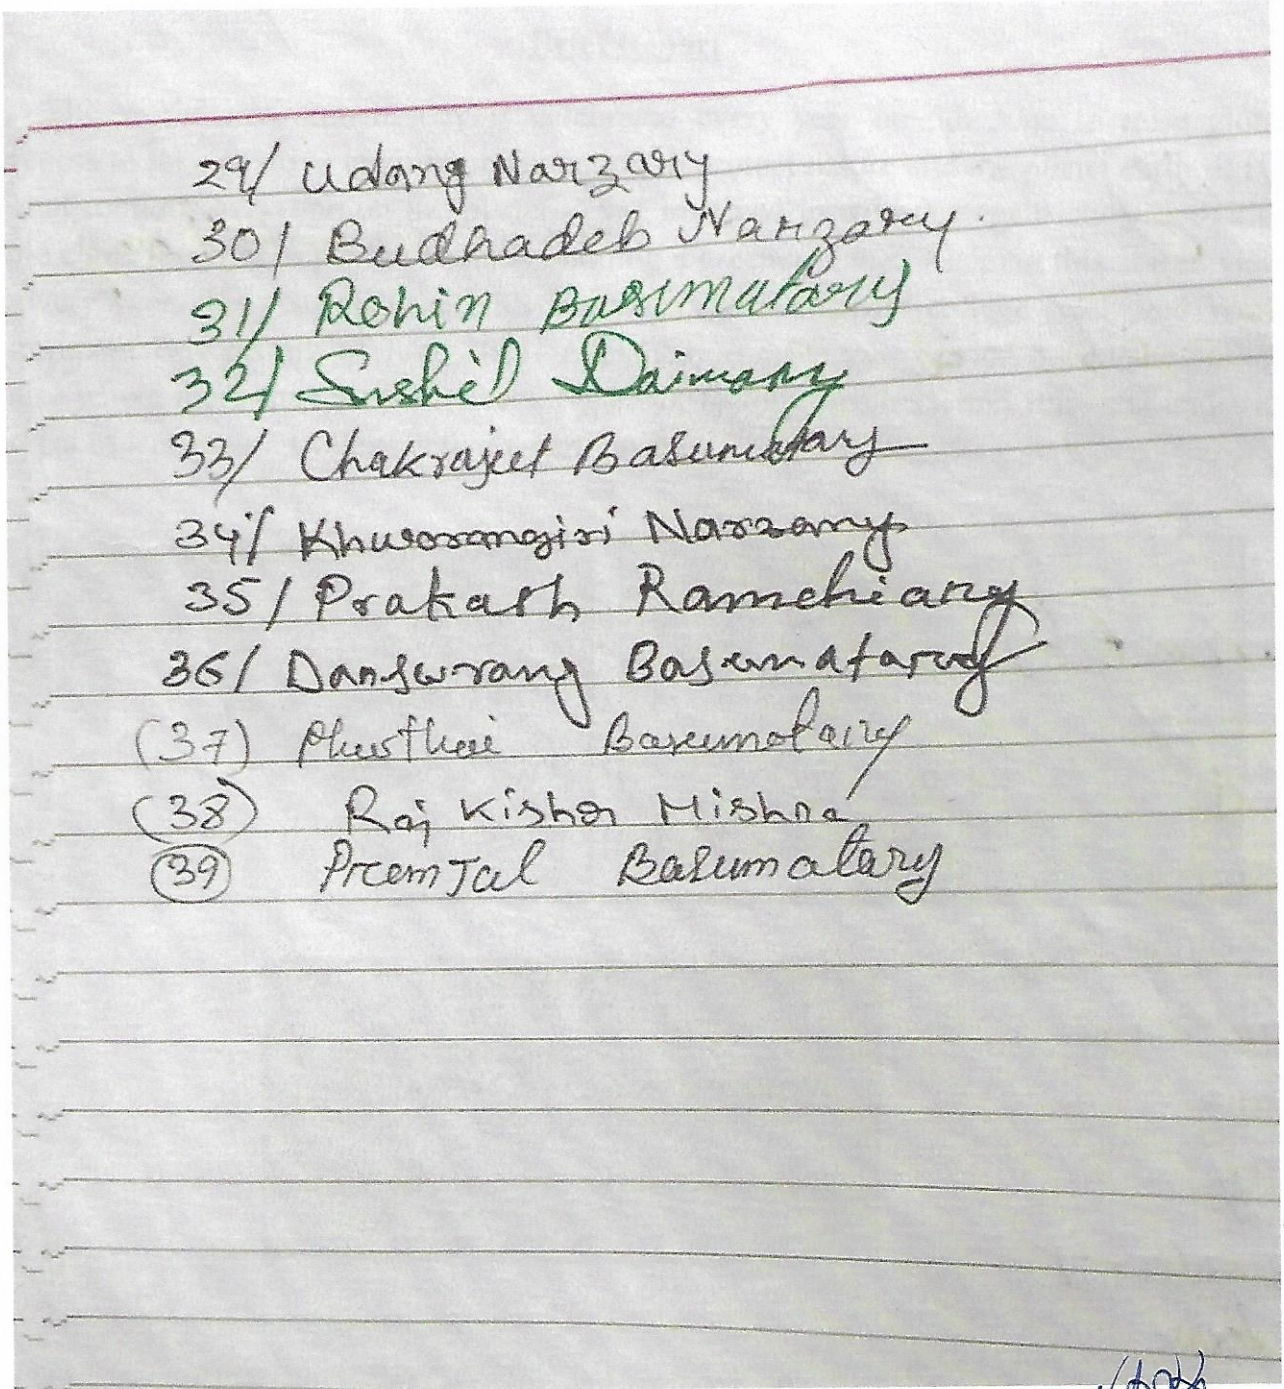 29/ Udang Narzary
30/ Budhadeb Narzary.
31/ Rohin Basumatary
32/ Sushil Daimary
33/ Chakrajeet Basumatary
34/ Khwrwmgiri Narzary
35/ Prakash Ramchiary
36/ Danswrang Basumatary
(37) Basumatary
(38) Raj Kishor Mishra
39 Premjal Basumatary